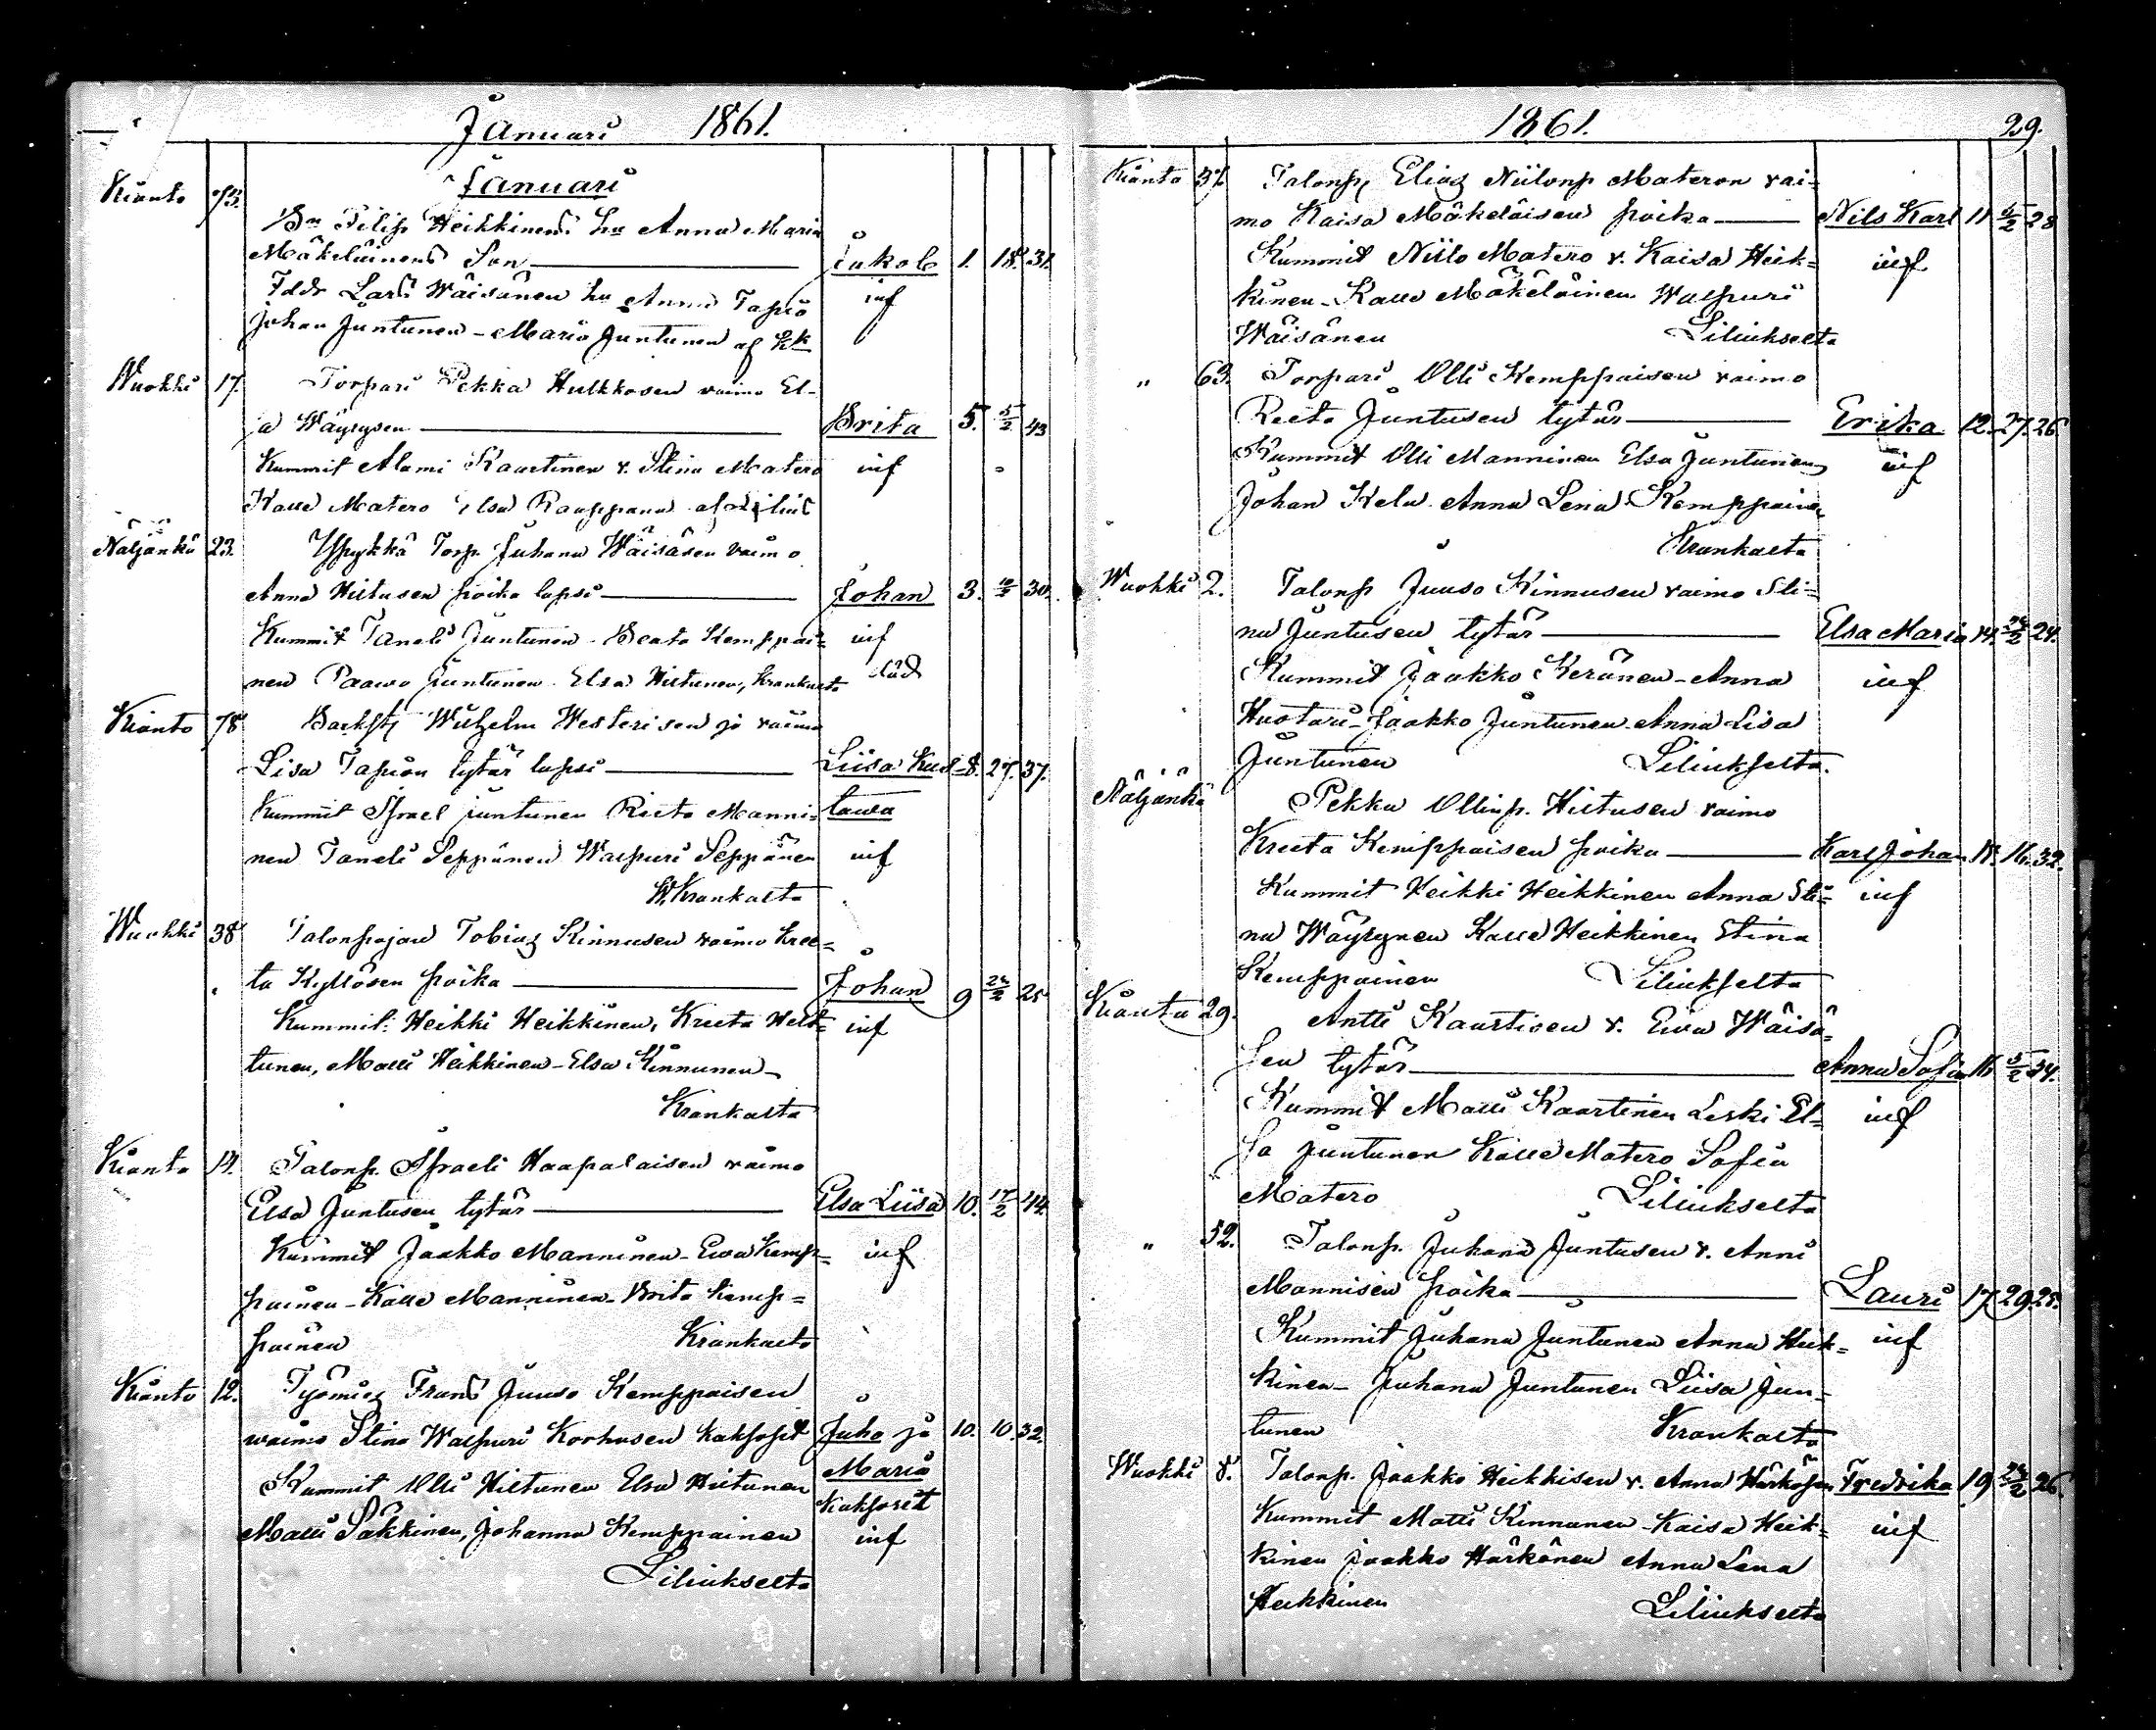 Januari 1861.
Januari
Kianto 73. Bn Filip Heikkinens hu Anna Maria
Mäkeläinens Son Jakob 1. 18. 31.
Fddr Lars Wäisänen hu Anna Tapio inf
Johan Juntunen - Maria Juntunen af Kk
Wuokki 17. Torpari Pekka Hulkkosen vaimo El-
sa Wäyrysen Brita 5. 5/2 43
Kummit Alami Kaartinen v. Stina Matero inf
Kalle Matero Elsa Rauppana af Lilius
Näljänkä 23. Ypykkä Torp. Juhana Wäisäsen vaimo
Anna Hiltusen poika lapsi Johan 3. 30.
Kummit Taneli Juntunen - Beata Kemppai= inf
nen Paawo Juntunen Elsa Hiltunen, Krankalta död
Kianto 78 Backstf Wilhelm Westerisen ja vaimo
Lisa Tapion tytär lapsi Liisa Kus- 8. 27. 37.
Kummit Israel Juntunen Riita Manni= tawa
nen Taneli Seppänen Walpuri Seppänen inf
W. Krankalta
Wuokki 38 Talonpojan Tobias Kinnusen vaimo Kree=
ta Kyllösen poika Johan 9 24/2 25
Kummit: Heikki Heikkinen, Kreeta Helt= inf
tunen, Matti Heikkinen - Elsa Kinnunen -
Krankalta
Kianto 14. Talonp. Israeli Haapalaisen vaimo
Elsa Juntusen tytär Elsa Liisa 10. 17/2 44.
Kummit Jaakko Manninen - Ewa Kemp= inf
painen - Kalle Manninen - Brita Kemp=
painen Krankalta
Kianto 12. Työmies Frans Juuso Kemppaisen
waimo Stina Walpuri Korhosen kaksoset Juho ja 10. 10. 32.
Kummit Olli Hiltunen Elsa Hiltunen Maria
kaksoset
Matti Säkkinen, Johanna Kemppainen inf
Liliukselta
1861. 29.
Kianto 37. Talonp. Elias Niilonp Materon vai-
mo Kaisa Mäkeläisen poika Nils Karl 11 28
Kummit Niilo Matero v. Kaisa Heik= inf
kinen - Kalle Mäkeläinen Walpuri
Wäisänen Liliukselta
" 63. Torpari Olli Kemppaisen vaimo
Reeta Juntusen tytär Erika 12. 27. 26
Kummit Olli Manninen Elsa Juntunen inf
Johan Kela Anna Lena Kemppainen
Krankalta
Wuokki 2. Talonp Juuso Kinnusen vaimo Sti=
na Juntusen tytär Elsa Maria 14. 24/2 24.
Kummit Jaakko Keränen - Anna inf
Huotari - Jaakko Juntunen Anna Lisa
Juntunen Liliukselta.
Näljänkä Pekka Ollinp. Hiltusen vaimo
Kreeta Kemppaisen poika Karl Johan 18. 16. 32.
Kummit Heikki Heikkinen Anna Sti= inf
na Wäyrynen Kalle Heikkinen Stina
Kemppainen Liliukselta
Kianta 29. Antti Kaartisen v. Ewa Wäisä=
sen tytär Anna Sofia 16 5/2 34.
Kummit Matti Kaartinen Leski El= inf
sa Juntunen Kalle Matero Sofia
Matero Liliukselta
" 52. Talonp. Juhana Juntusen v. Anni
Mannisen poika Lauri 17. 29. 25.
Kummit Juhana Juntunen Anna Heik= inf
kinen - Juhana Juntunen Liisa Jun-
tunen Krankalta
Wuokki 8. Talonp. Jaakko Heikkisen v. Anna Härkösen Fredrika 19 24/2 26.
Kummit Matti Kinnunen - Kaisa Heik= inf
kinen Jaakko Härkönen Anna Lena
Heikkinen Liliukselta